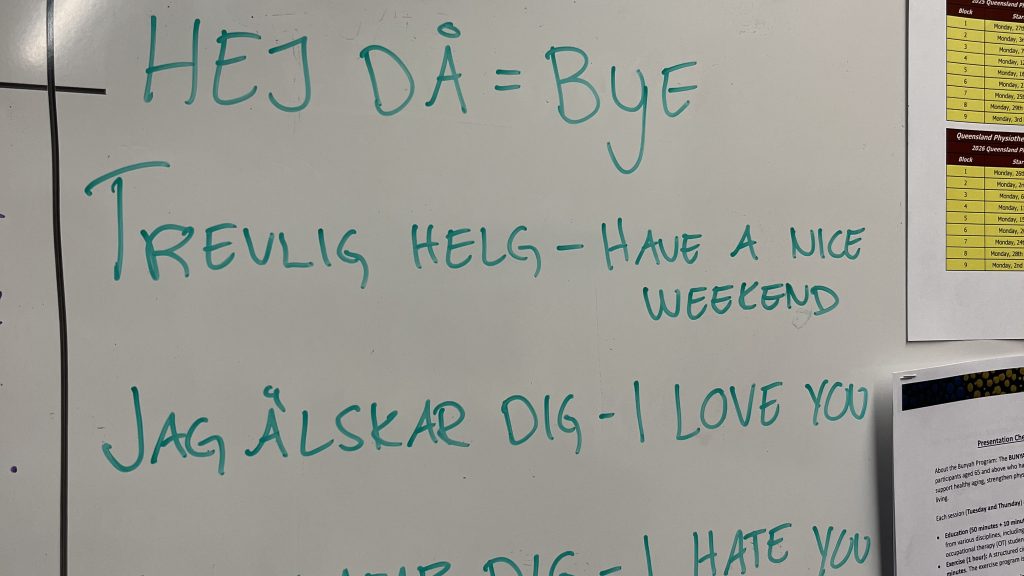 HEJ DÅ = BYE
TREVLIG HELG - HAVE A NICE
WEEKEND
JAG ÄLSKAR DIG - I LOVE YOU
DIG - I HATE YOU
2025 Queensland
Block
1 Monday, 27th
2 Monday,
3 Monday,
4 Monday,
5 Monday,
6 Monday,
7 Monday,
8 Monday, 29th
9 Monday, 3rd
Queensland
2026 Queensland
Block
1 Monday,
2 Monday,
3 Monday,
4 Monday,
5 Monday,
6 Monday,
7 Monday,
8 Monday, 28th
9 Monday, 2nd
Presentation
About the Bunyah Program: The
participants aged 65 and above who
support healthy aging, strengthen
living.
Each session (Tuesday and Thursday)
• Education (50 minutes + 10
from various disciplines,
occupational therapy (OT)
• Exercise (1 hour): A structured
minutes. The exercise program